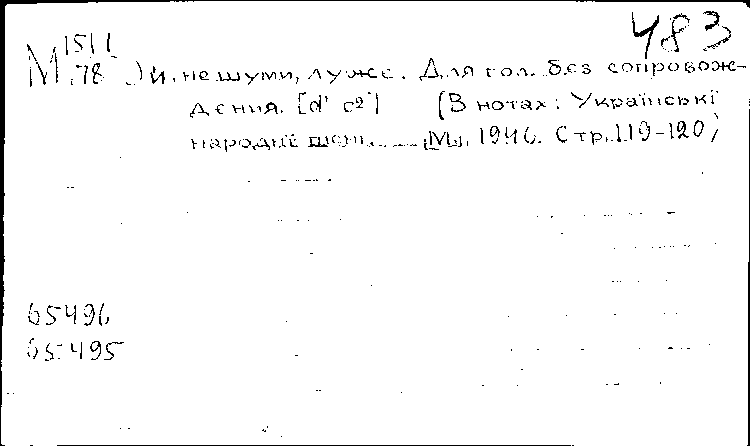 483
М 1511
78
Ой, не шуми, луже. Для гол. без сопровож-
дения. [d¹ c²] (В нотах: Українські
народні пісні. М., 1946. Стр. 119-120)
65496
65495